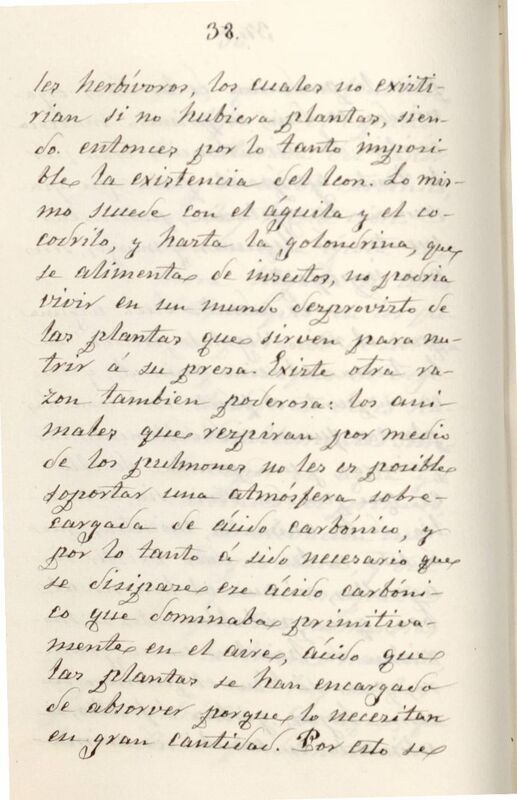 38.
les herbívoros, los cuales no existi-
rian si no hubiera plantas, sien-
do entonces por lo tanto imposi-
ble la existencia del leon. Lo mis-
mo suede con el águila y el co-
codrilo, y hasta la golondrina, que
se alimenta de insectos, no podria
vivir en un mundo desprovisto de
las plantas que sirven para nu-
trir á su presa. Existe otra ra-
zon tambien poderosa: los ani-
males que respiran por medio
de los pulmones no les es posible
soportar una atmósfera sobre-
cargada de ácido carbónico, y
por lo tanto á sido necesario que
se disipase ese ácido carbóni-
co que dominaba primitiva-
mente en el aire, ácido que
las plantas se han encargado
de absorver porque lo necesitan
en gran cantidad. Por esto se